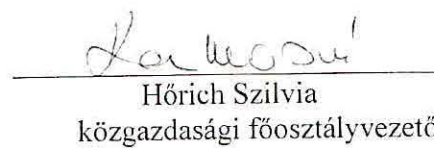 Hőrich Szilvia
közgazdasági főosztályvezető